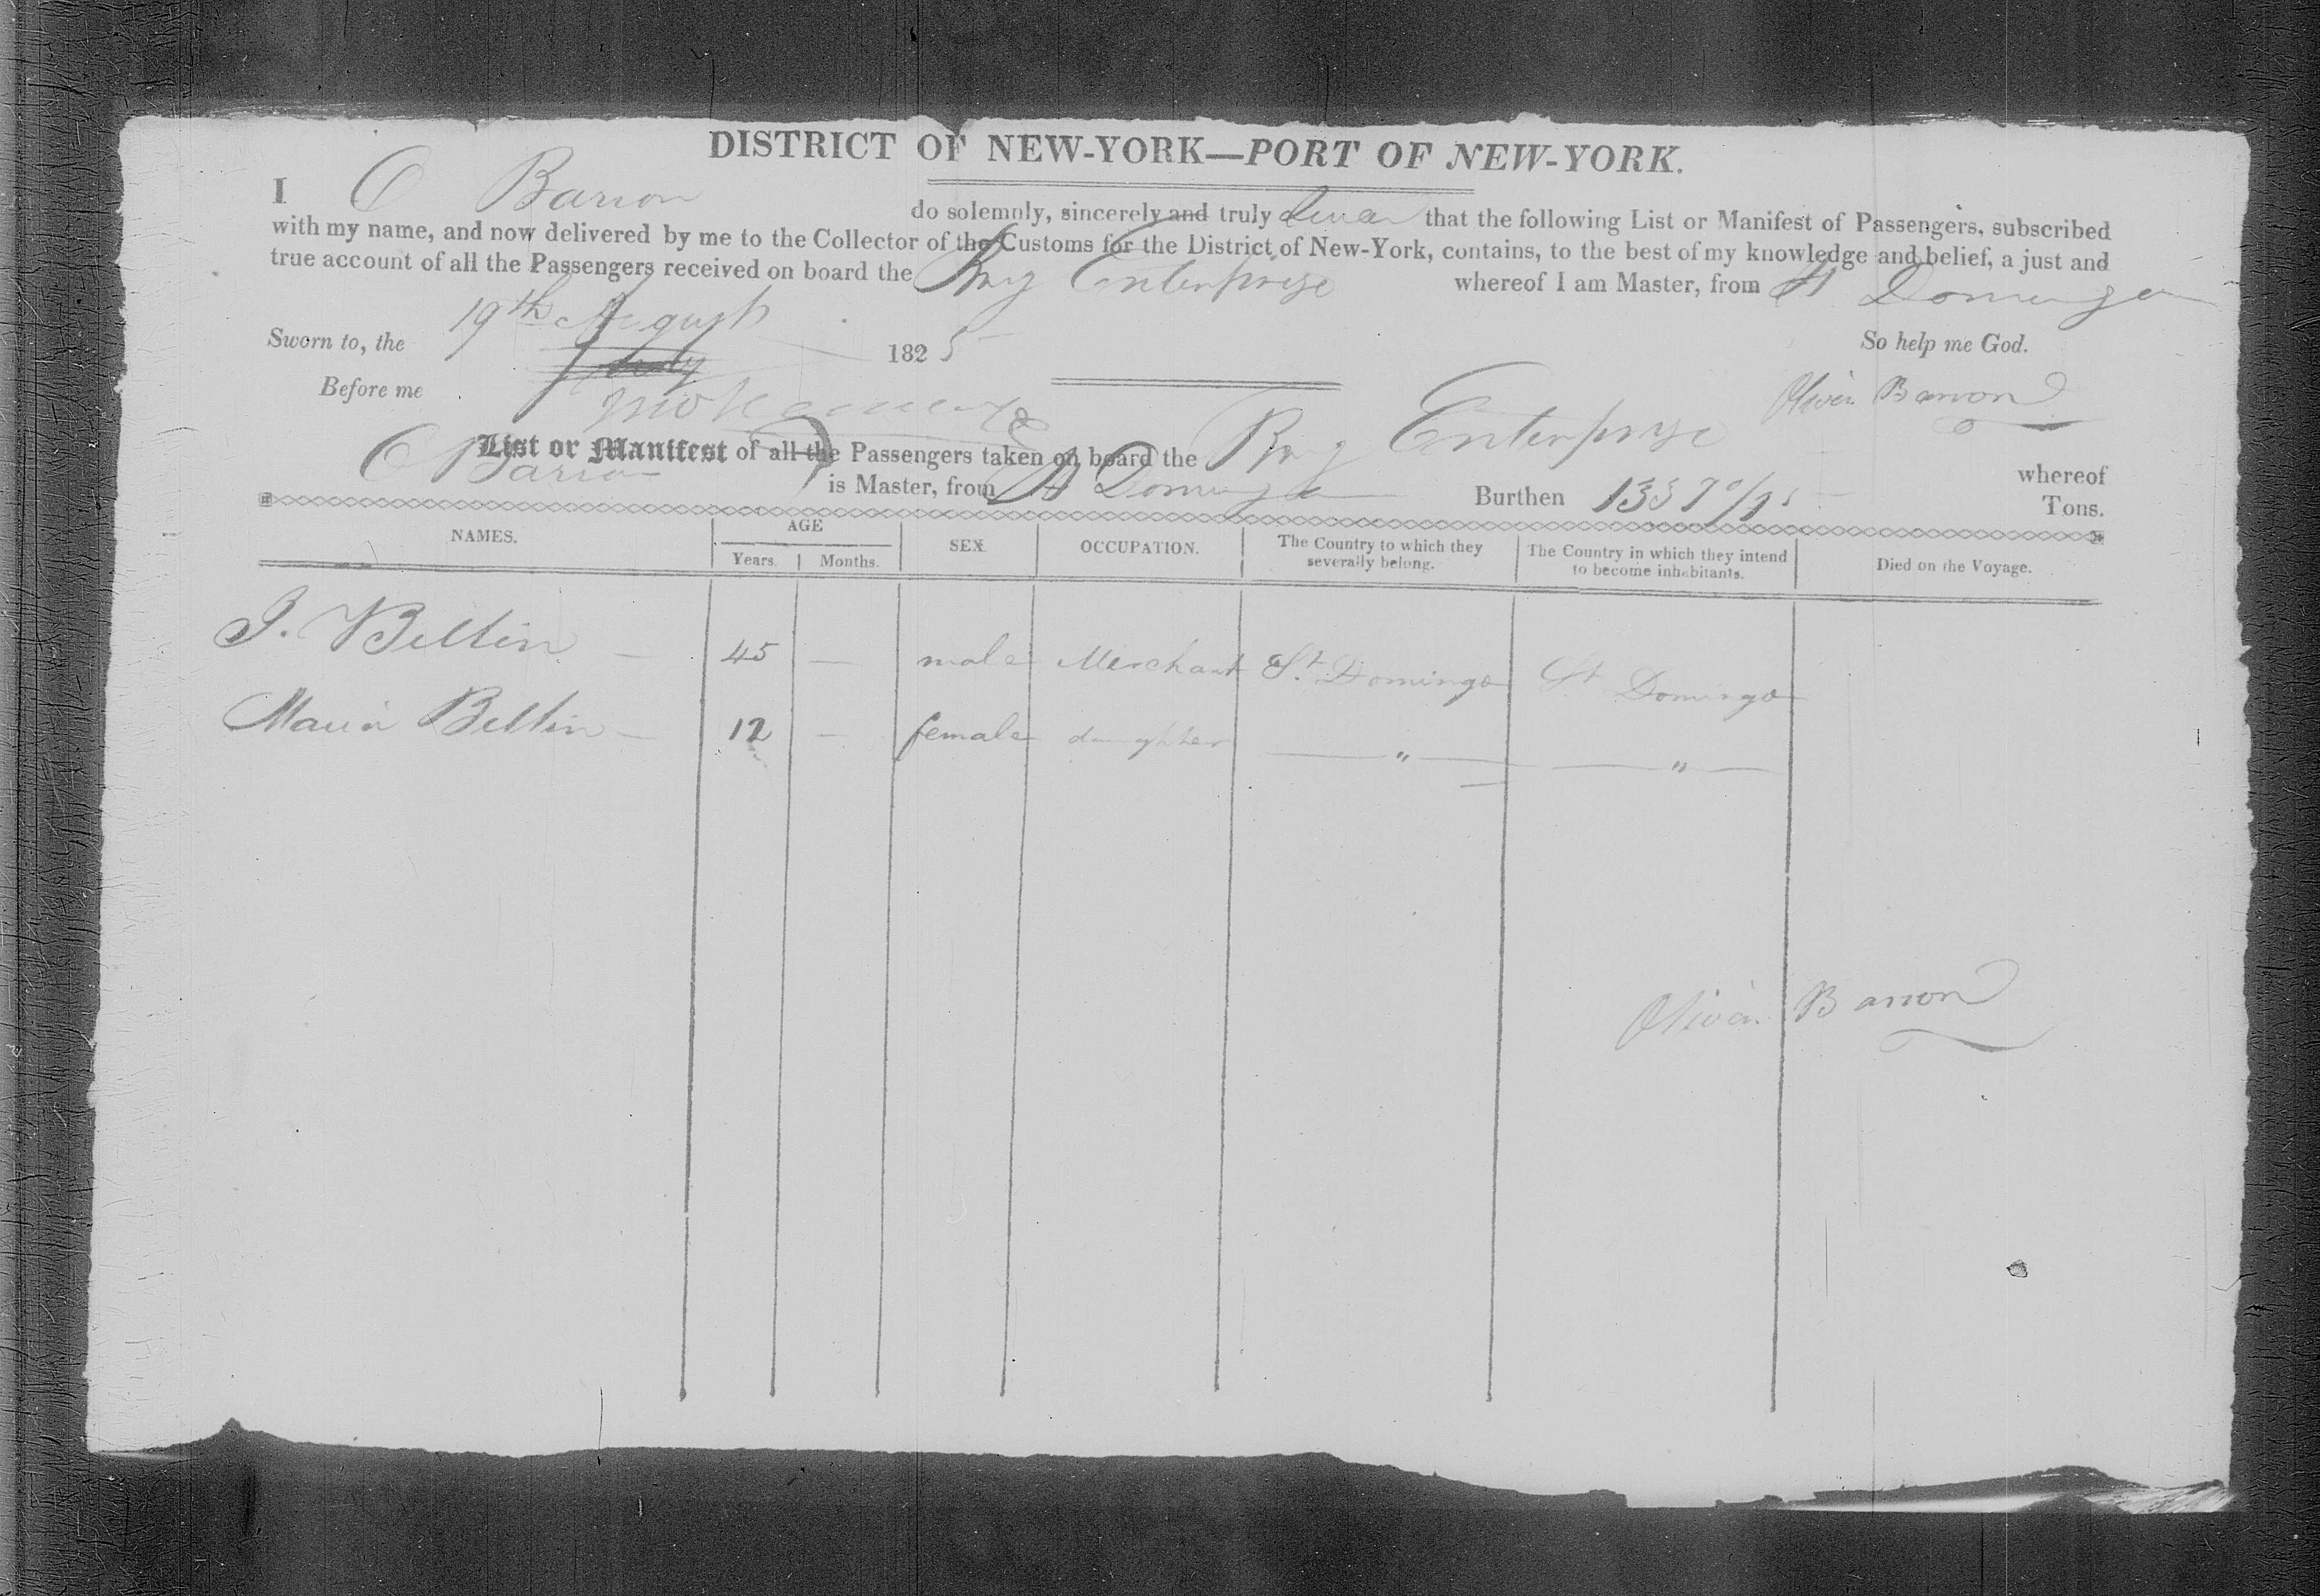 DISTRICT OF NEW-YORK—PORT OF NEW-YORK.
I O Barron do solemnly, sincerely and truly swear that the following List or Manifest of Passengers, subscribed
with my name, and now delivered by me to the Collector of the Customs for the District of New-York, contains, to the best of my knowledge and belief, a just and
true account of all the Passengers received on board the Brig Enterprise whereof I am Master, from St Domingo
Sworn to, the 19th August 1825 So help me God.
Before me Oliver Barron
List or Manifest of all the Passengers taken on board the Brig Enterprise whereof
O Barron is Master, from St Domingo Burthen Tons.
NAMES. AGE Years. Months. SEX. OCCUPATION. The Country to which they severally belong. The Country in which they intend to become inhabitants. Died on the Voyage.
J. Beltin — 45 — male Merchant St. Domingo St Domingo
Maria Beltin — 12 — female daughter — " — — " —
Oliver Barron